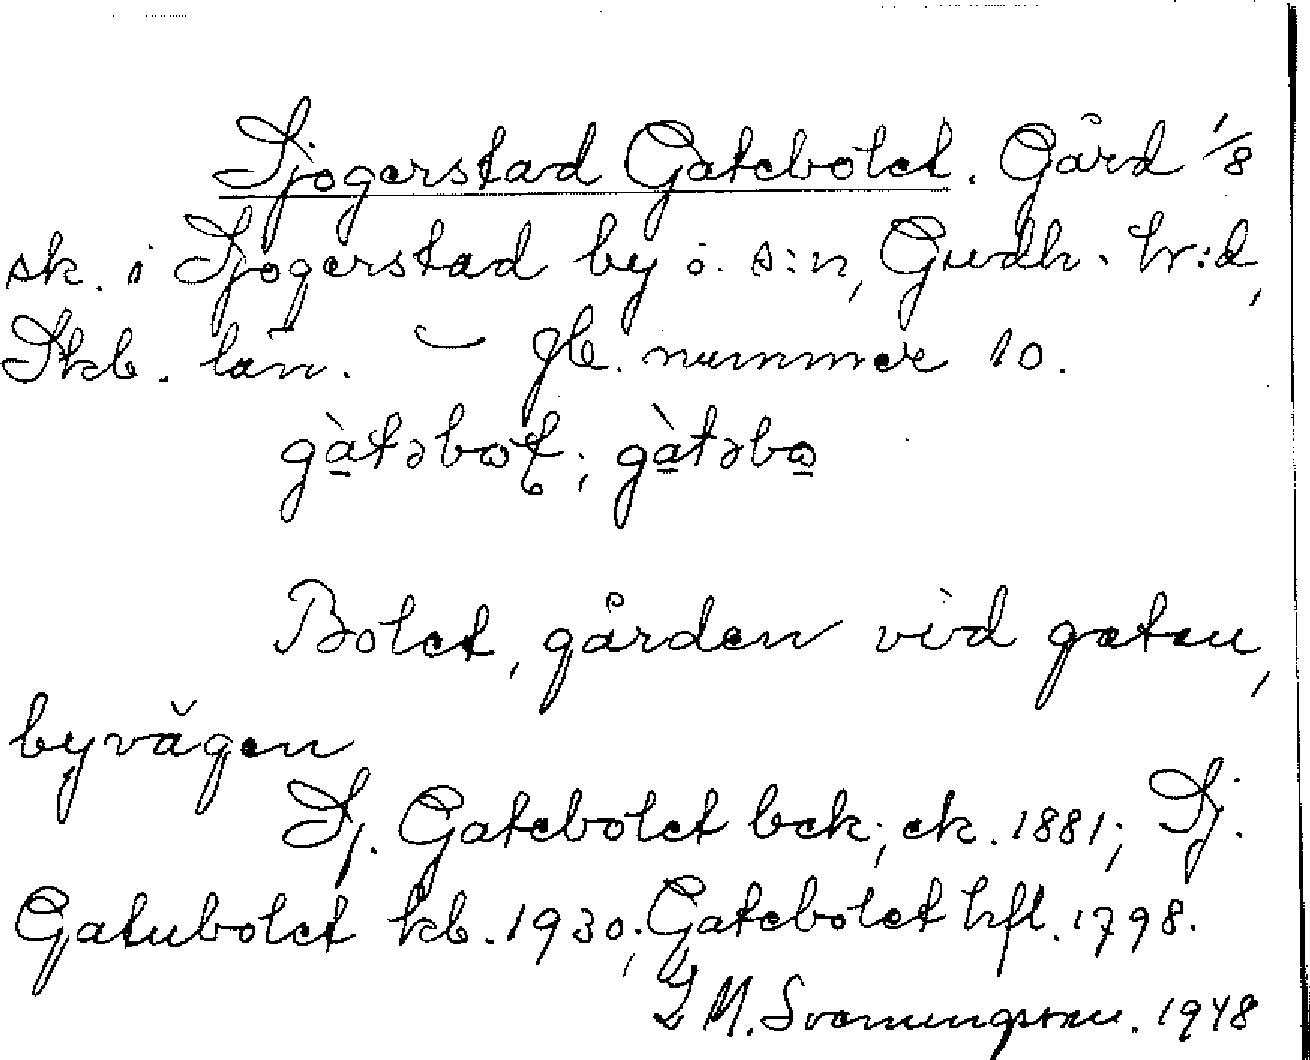 Sjogerstad Gatebolet. Gård 1/8
sk. i Sjogerstad by o. s:n, Gudh. hr:d,
Skb. län. – Jb. nummer 10.
gàtəboɫ; gàtəbo
Bolet, gården vid gatan,
byvägen
Sj. Gatebolet bek; ek. 1881; Sj.
Gatubolet kb. 1930; Gatebolet hfl. 1798.
M. Svanungsson. 1948